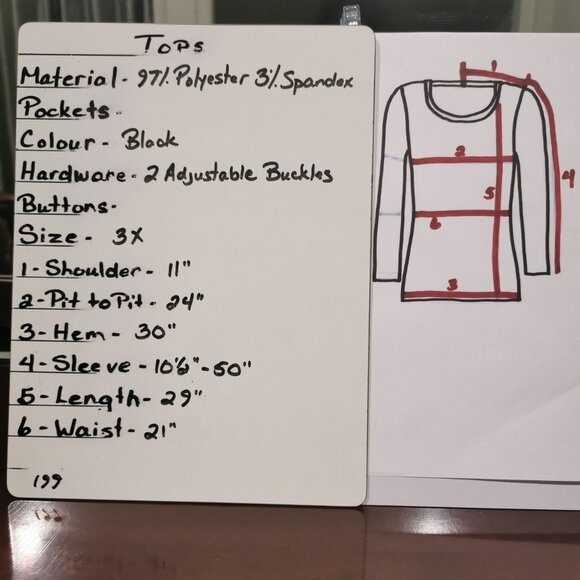 Tops
Material - 97% Polyester 3% Spandex
Pockets -
Colour - Black
Hardware - 2 Adjustable Buckles
Buttons -
Size - 3X
1 - Shoulder - 11"
2 - Pit to Pit - 24"
3 - Hem - 30"
4 - Sleeve - 10½" - 50"
5 - Length - 29"
6 - Waist - 21"
199
1
2
4
5
6
3